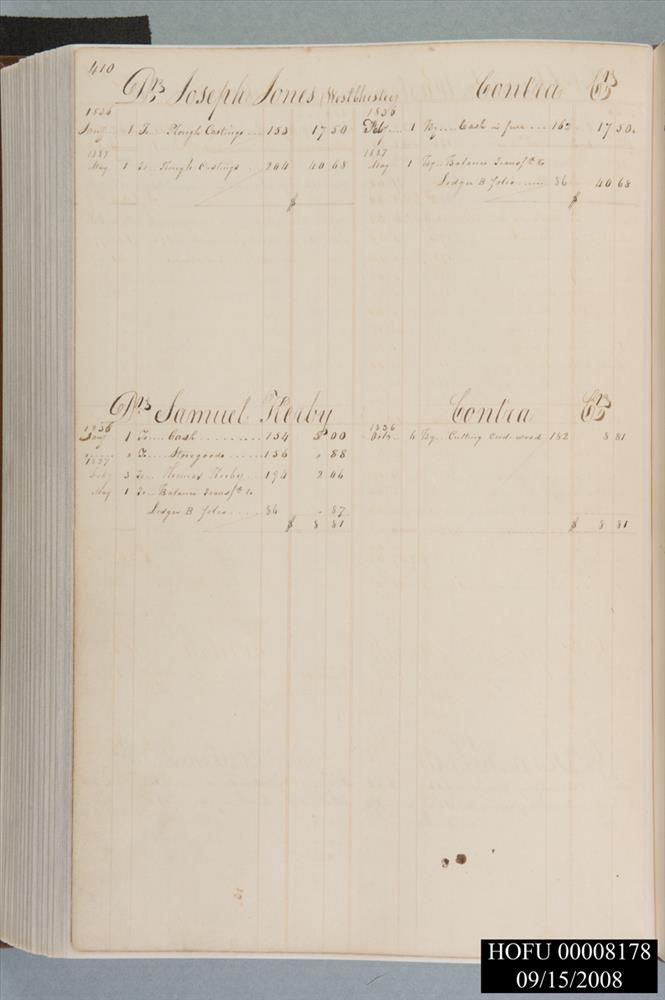 410
Dr. Joseph Jones Westchester
1836
Jany 1 To Plough Castings 153 17 50
1837
May 1 To Plough Castings 204 40 68
$
Contra Cr.
1836
Feby 1 By Cash in full 162 17 50
1837
May 1 By Balance Transfd to
Ledger B folio 86 40 68
$
Dr. Samuel Kerby
1836
Jany 1 To Cash 154 5 00
" " To Storegoods 156 " 88
1837
Feby 3 To Thomas Kerby 194 2 06
May 1 To Balance Transfd to
Ledger B folio 86 " 87
$ 8 81
Contra Cr.
1836
6 By Cutting Cord wood 182 8 81
$ 8 81
HOFU 00008178
09/15/2008